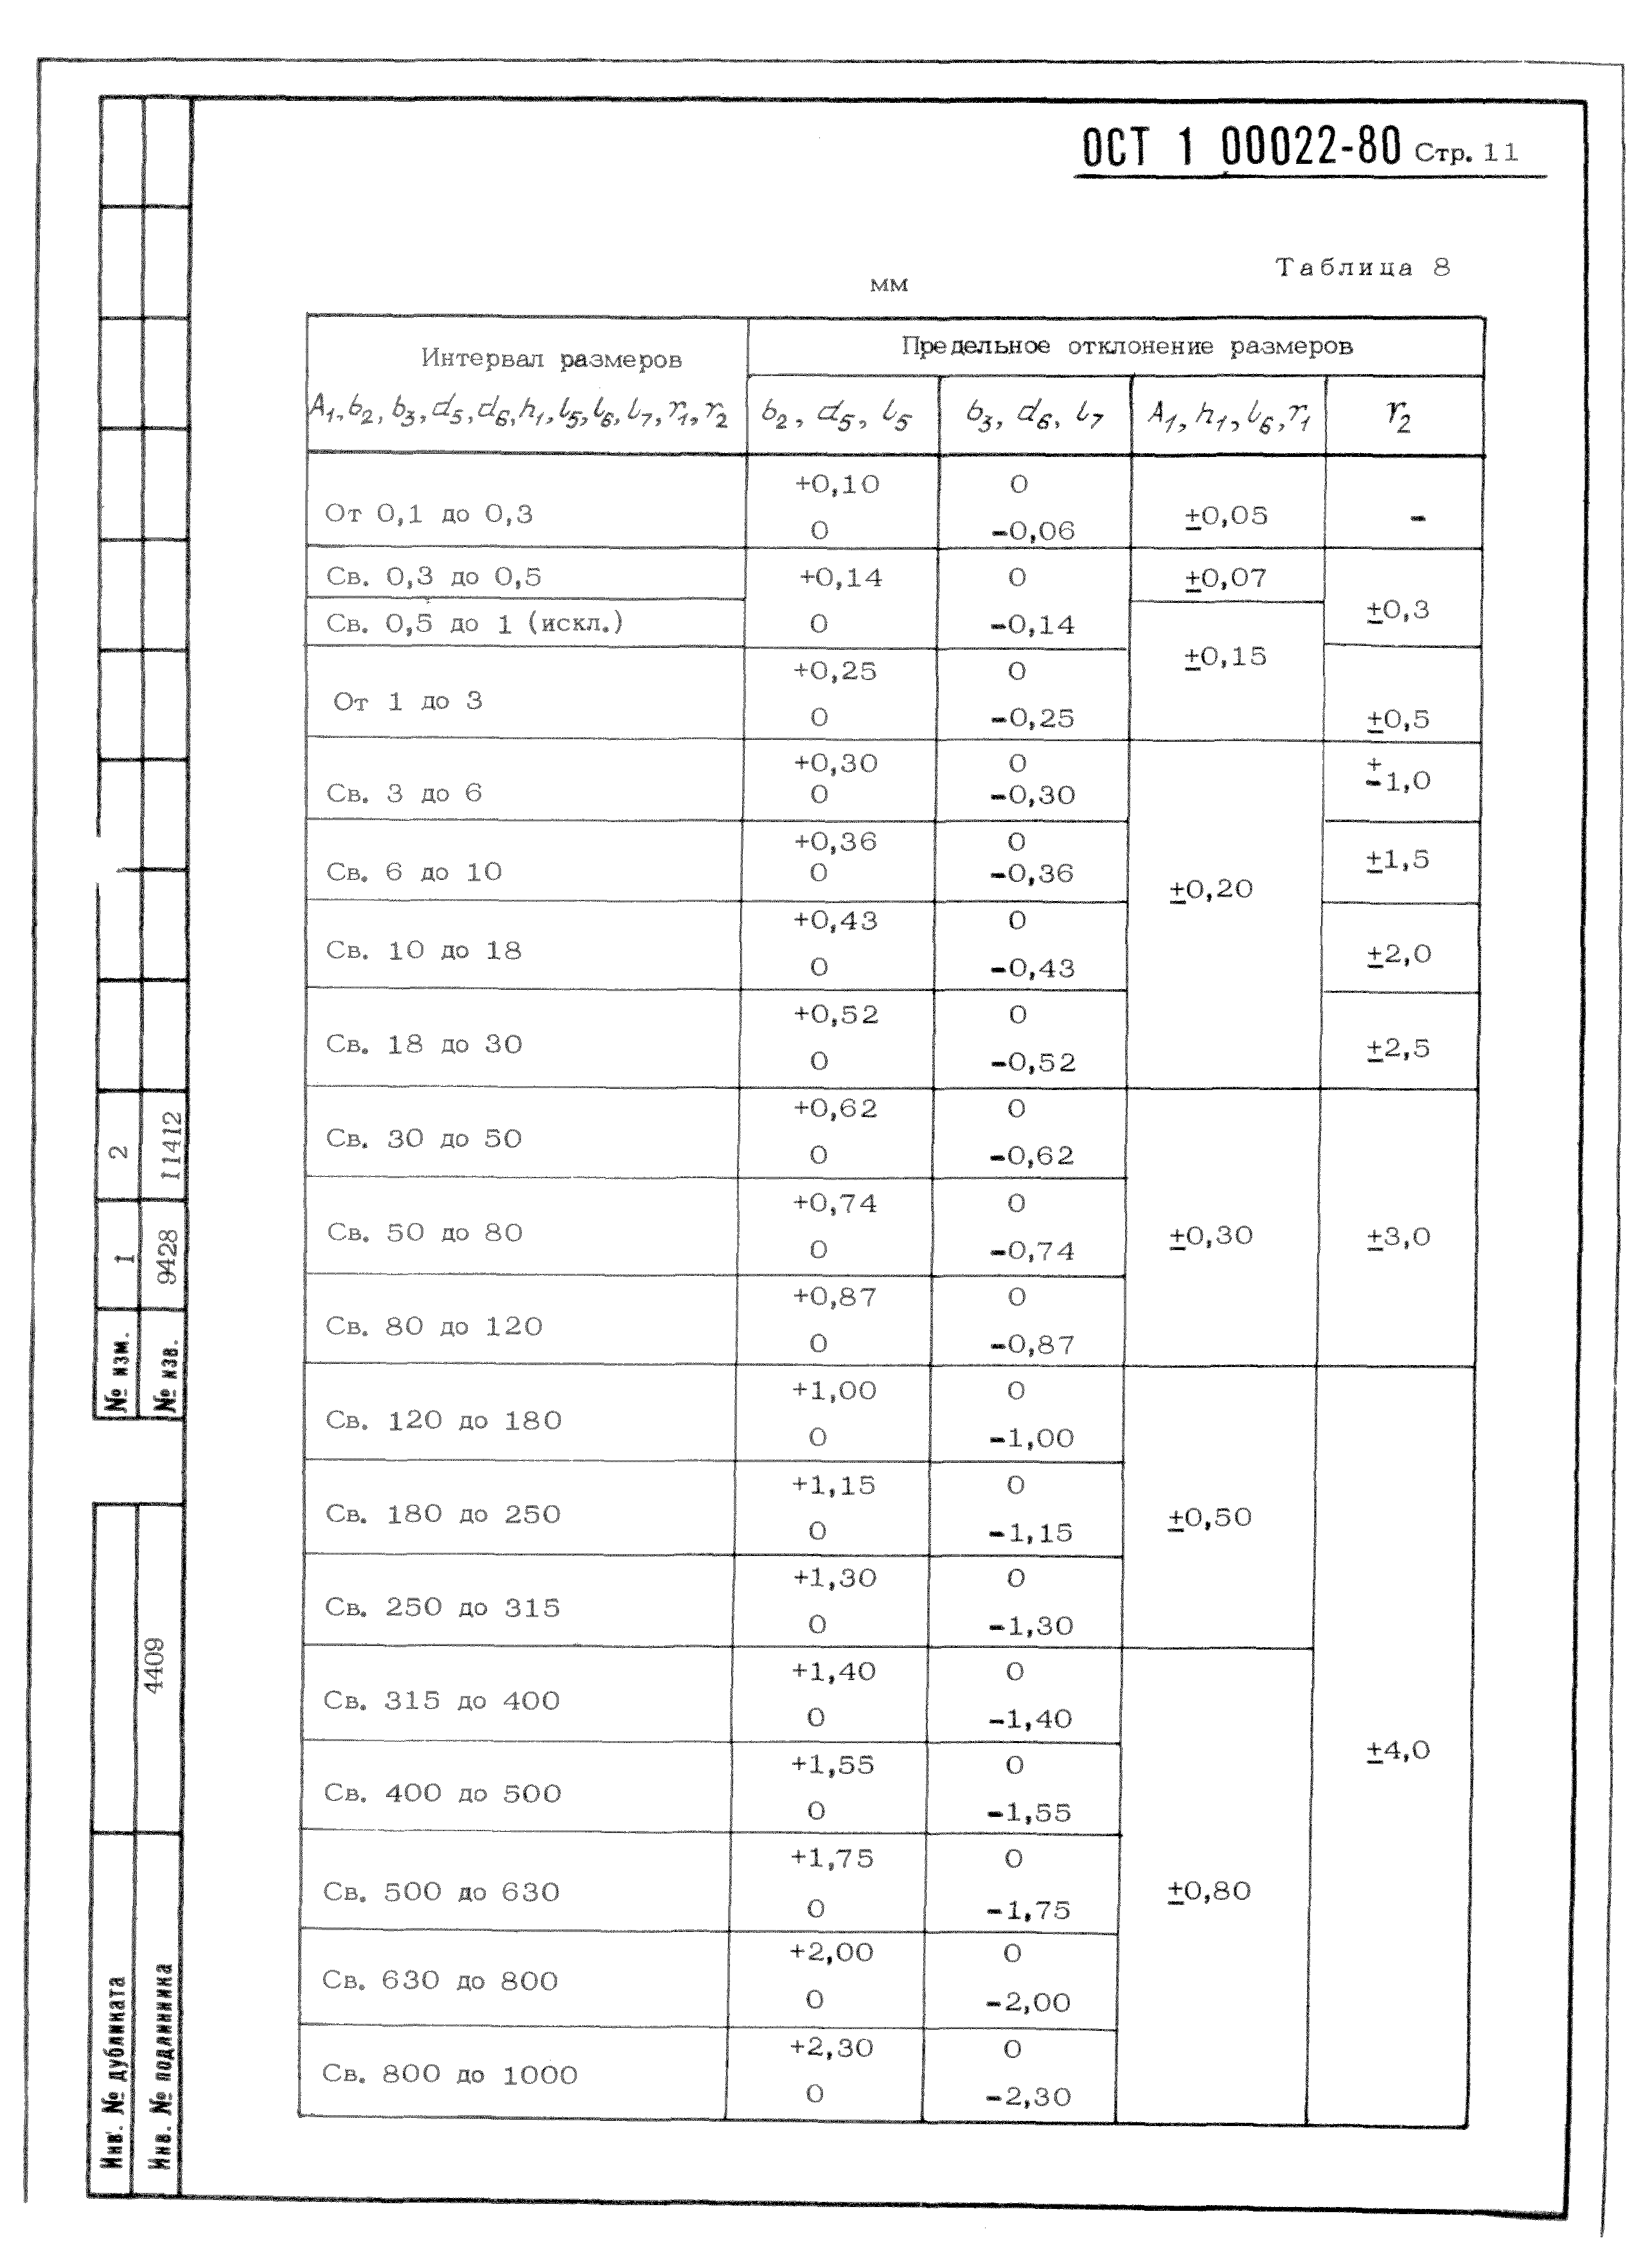 ОСТ 1 00022-80 Стр. 11
Таблица 8
мм
Интервал размеров
A1, b2, b3, d5, d6, h1, l5, l6, l7, r1, r2
Предельное отклонение размеров
b2, d5, l5
b3, d6, l7
A1, h1, l6, r1
r2
От 0,1 до 0,3
+0,10
0
0
-0,06
±0,05
-
Св. 0,3 до 0,5
Св. 0,5 до 1 (искл.)
+0,14
0
0
-0,14
±0,07
±0,3
От 1 до 3
+0,25
0
0
-0,25
±0,15
±0,5
Св. 3 до 6
+0,30
0
0
-0,30
±1,0
Св. 6 до 10
+0,36
0
0
-0,36
±0,20
±1,5
Св. 10 до 18
+0,43
0
0
-0,43
±2,0
Св. 18 до 30
+0,52
0
0
-0,52
±2,5
Св. 30 до 50
+0,62
0
0
-0,62
Св. 50 до 80
+0,74
0
0
-0,74
±0,30
±3,0
Св. 80 до 120
+0,87
0
0
-0,87
Св. 120 до 180
+1,00
0
0
-1,00
Св. 180 до 250
+1,15
0
0
-1,15
±0,50
Св. 250 до 315
+1,30
0
0
-1,30
Св. 315 до 400
+1,40
0
0
-1,40
±4,0
Св. 400 до 500
+1,55
0
0
-1,55
Св. 500 до 630
+1,75
0
0
-1,75
±0,80
Св. 630 до 800
+2,00
0
0
-2,00
Св. 800 до 1000
+2,30
0
0
-2,30
№ изм.
1
2
№ изв.
9428
11412
Инв. № дубликата
Инв. № подлинника
4409